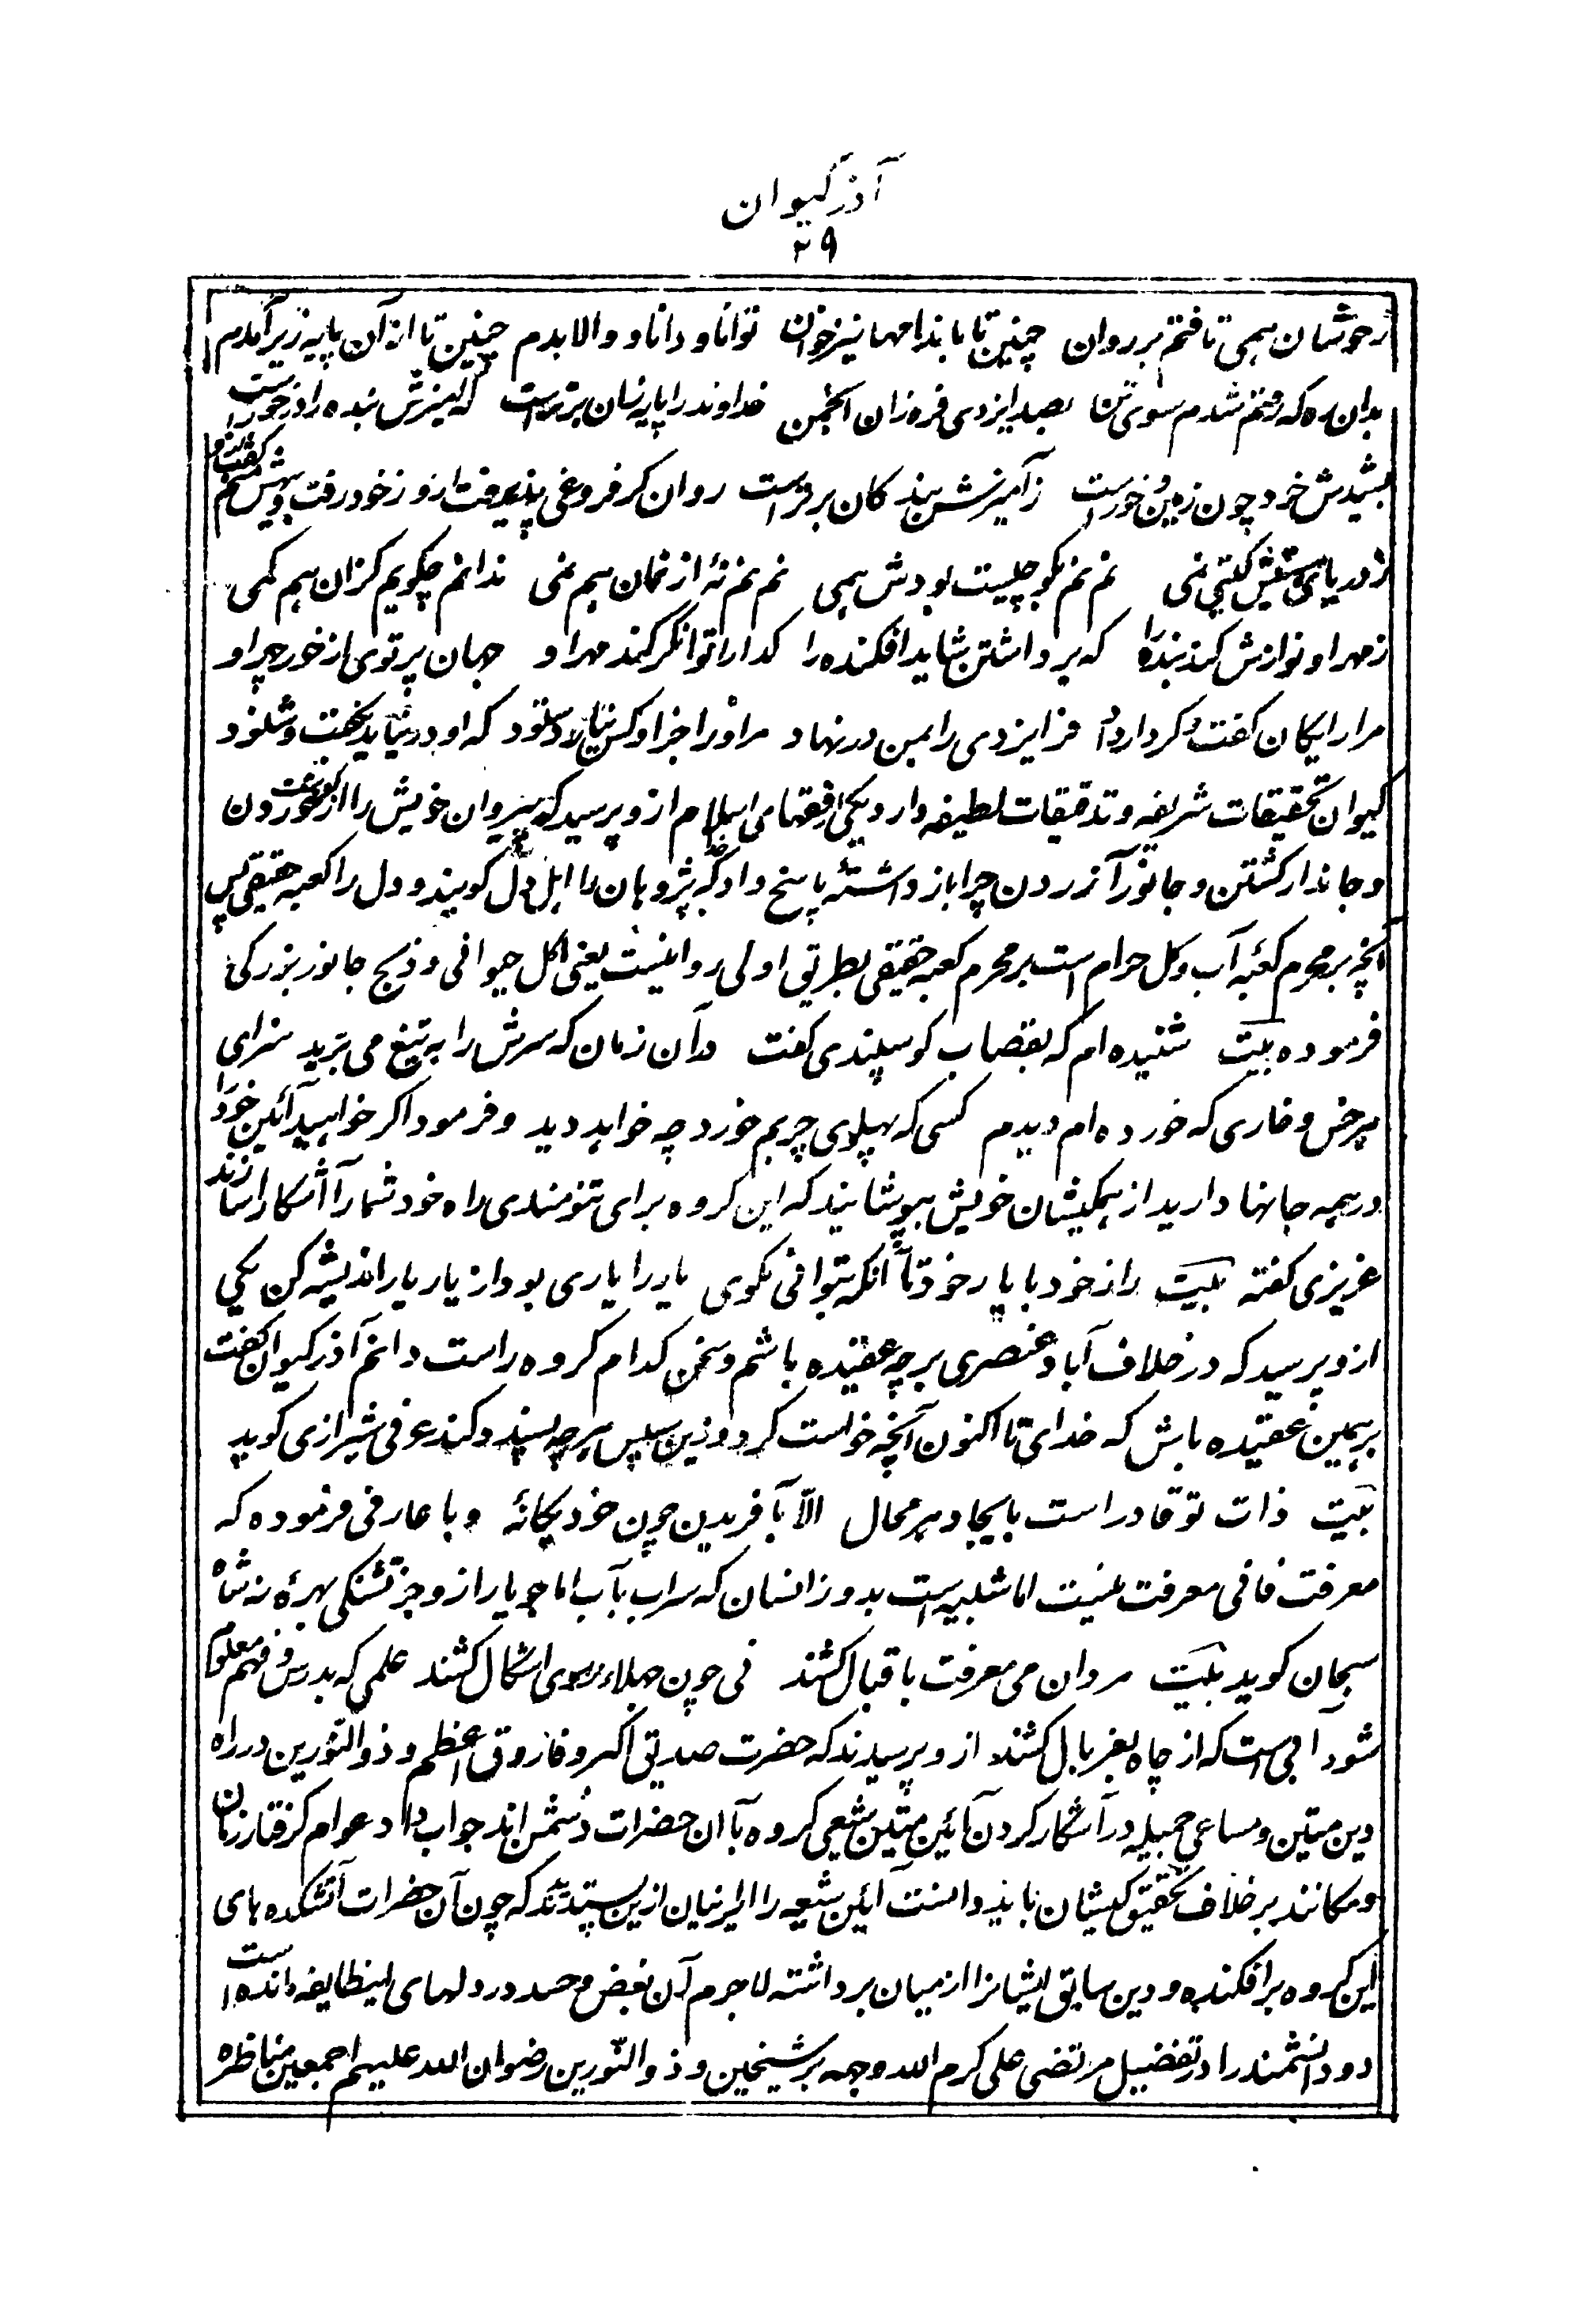 آذر کیوان
۲۹
رخوشان همی تافتم بر روان چنین تا باندامها نیز خوان توانا و دانا و والا بدم چنین تا ازان پایه زیر آمدم
بدان ره که رفتم شدم سوی تن بصد ایزدی فره زان انجمن خداوند را پایه زنسان برتراست که بنده را درخوراست
خرد چون زمین خوراست زآمیزش بندکان برتراست روان کز فروغی پذیرفت ازو زخود رفت و
ز دریای هستیش کیتی نمی نم نم بکو چیست بودش همی نم نم نهٔ از نمان هم نمی ندانم چکویم کزان هم کمی
ز مهر او نوازش کند بنده را که برداشتن شاید افکنده را کدا را توانکر کند مهر او جهان پرتوی از خور چهر او
مرا رایکان کفت و کردار داد فر ایزدی را بمن در نهاد مر او را جز او کس نیارد ستود که او در نیاید بکفت و شنود
کیوان تحقیقات شریفه و تدقیقات لطیفه دارد یکی از فقهای اسلام ازو پرسید که پیروان خویش را از کوشت خوردن
و جاندار کشتن و جانور آزردن چرا باز داشتهٔ پاسخ داد که خدا پژوهان را اهل دل کویند و دل را کعبه حقیقی پس
آنچه بر محرم کعبهٔ آب و کل حرام است بر محرم کعبه حقیقی بطریق اولی روا نیست یعنی اکل حیوانی و ذبح جانور بزرکی
فرموده بیت شنیده ام که بقصاب کوسپندی کفت در آن زمان که سرش را به تیغ می برید سزای
هر خس و خاری که خورده ام دیدم کسی که پهلوی چربم خورد چه خواهد دید و فرمود اکر خواهید آئین خود را
در همه جا نهان دارید از همکیشان خویش بپوشانید که این کروه برای تنومندی راه خود شما را آشکارا سازند
عزیزی کفته بیت راز خود با یار خود تا آنکه بتوانی مکوی یار را یاری بود از یار یار اندیشه کن یکی
ازو پرسید که در خلاف آباد عنصری بر چه عقیده باشم و سخن کدام کروه راست دانم آذر کیوان کفت
بر همین عقیده باش که خدای تا اکنون آنچه خواست کرد و زین سپس هر چه پسندد کند عرفی شیرازی کوید
بیت ذات تو قادر است بایجاد هر محال الّا بآفریدن چون خود یکانهٔ و با عارفی فرموده که
معرفت فانی معرفت نیست اما شبیه است بدو زانسان که سراب بآب اما جویا را ازو جز تشنکی بهره نه شاه
سبحان کوید بیت مردان می معرفت باقبال کشند نی چون جهلا دردی اشکال کشند علمی که بدرس و فهم معلوم
شود آبی است که از چاه بغربال کشند ازو پرسیدند که حضرت صدیق اکبر و فاروق اعظم و ذو النّورین در راه
دین متین و مساعی جمیله در آشکار کردن آئین متین شیعی کروه با آن حضرات دشمن اند جواب داد عوام کرفتار زمان
و مکانند بر خلاف تحقیق کیشان باید دانست آئین شیعه را ایرانیان ازین پسندیدند که چون آن حضرات آتشکده های
این کروه بر افکنده و دین سابق ایشانرا از میان برداشته لاجرم آن بغض و حسد در دلهای اینطایفه مانده است
دو دانشمند را در تفضیل مرتضی علی کرم الله وجهه بر شیخین و ذو النّورین رضوان الله علیهم اجمعین مناظره